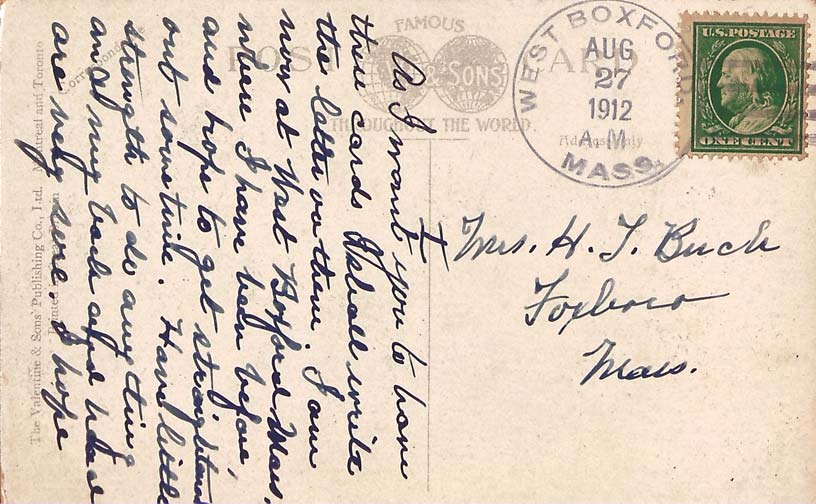 FAMOUS
POST CARD
& SONS
THROUGHOUT THE WORLD.
Address Only
Correspondence
WEST BOXFORD
AUG
27
1912
A.M.
MASS.
U.S. POSTAGE
ONE CENT
Mrs. H. T. Buck
Foxboro
Mass.
As I want you to have
these cards I shall write
the letter on them. I am
now at West Boxford Mass.
where I have been before,
and hope to get straightened
out sometime. Have little
strength to do anything
and my back and head
are very sore. I hope
The Valentine & Sons' Publishing Co., Ltd. Montreal and Toronto
Printed in